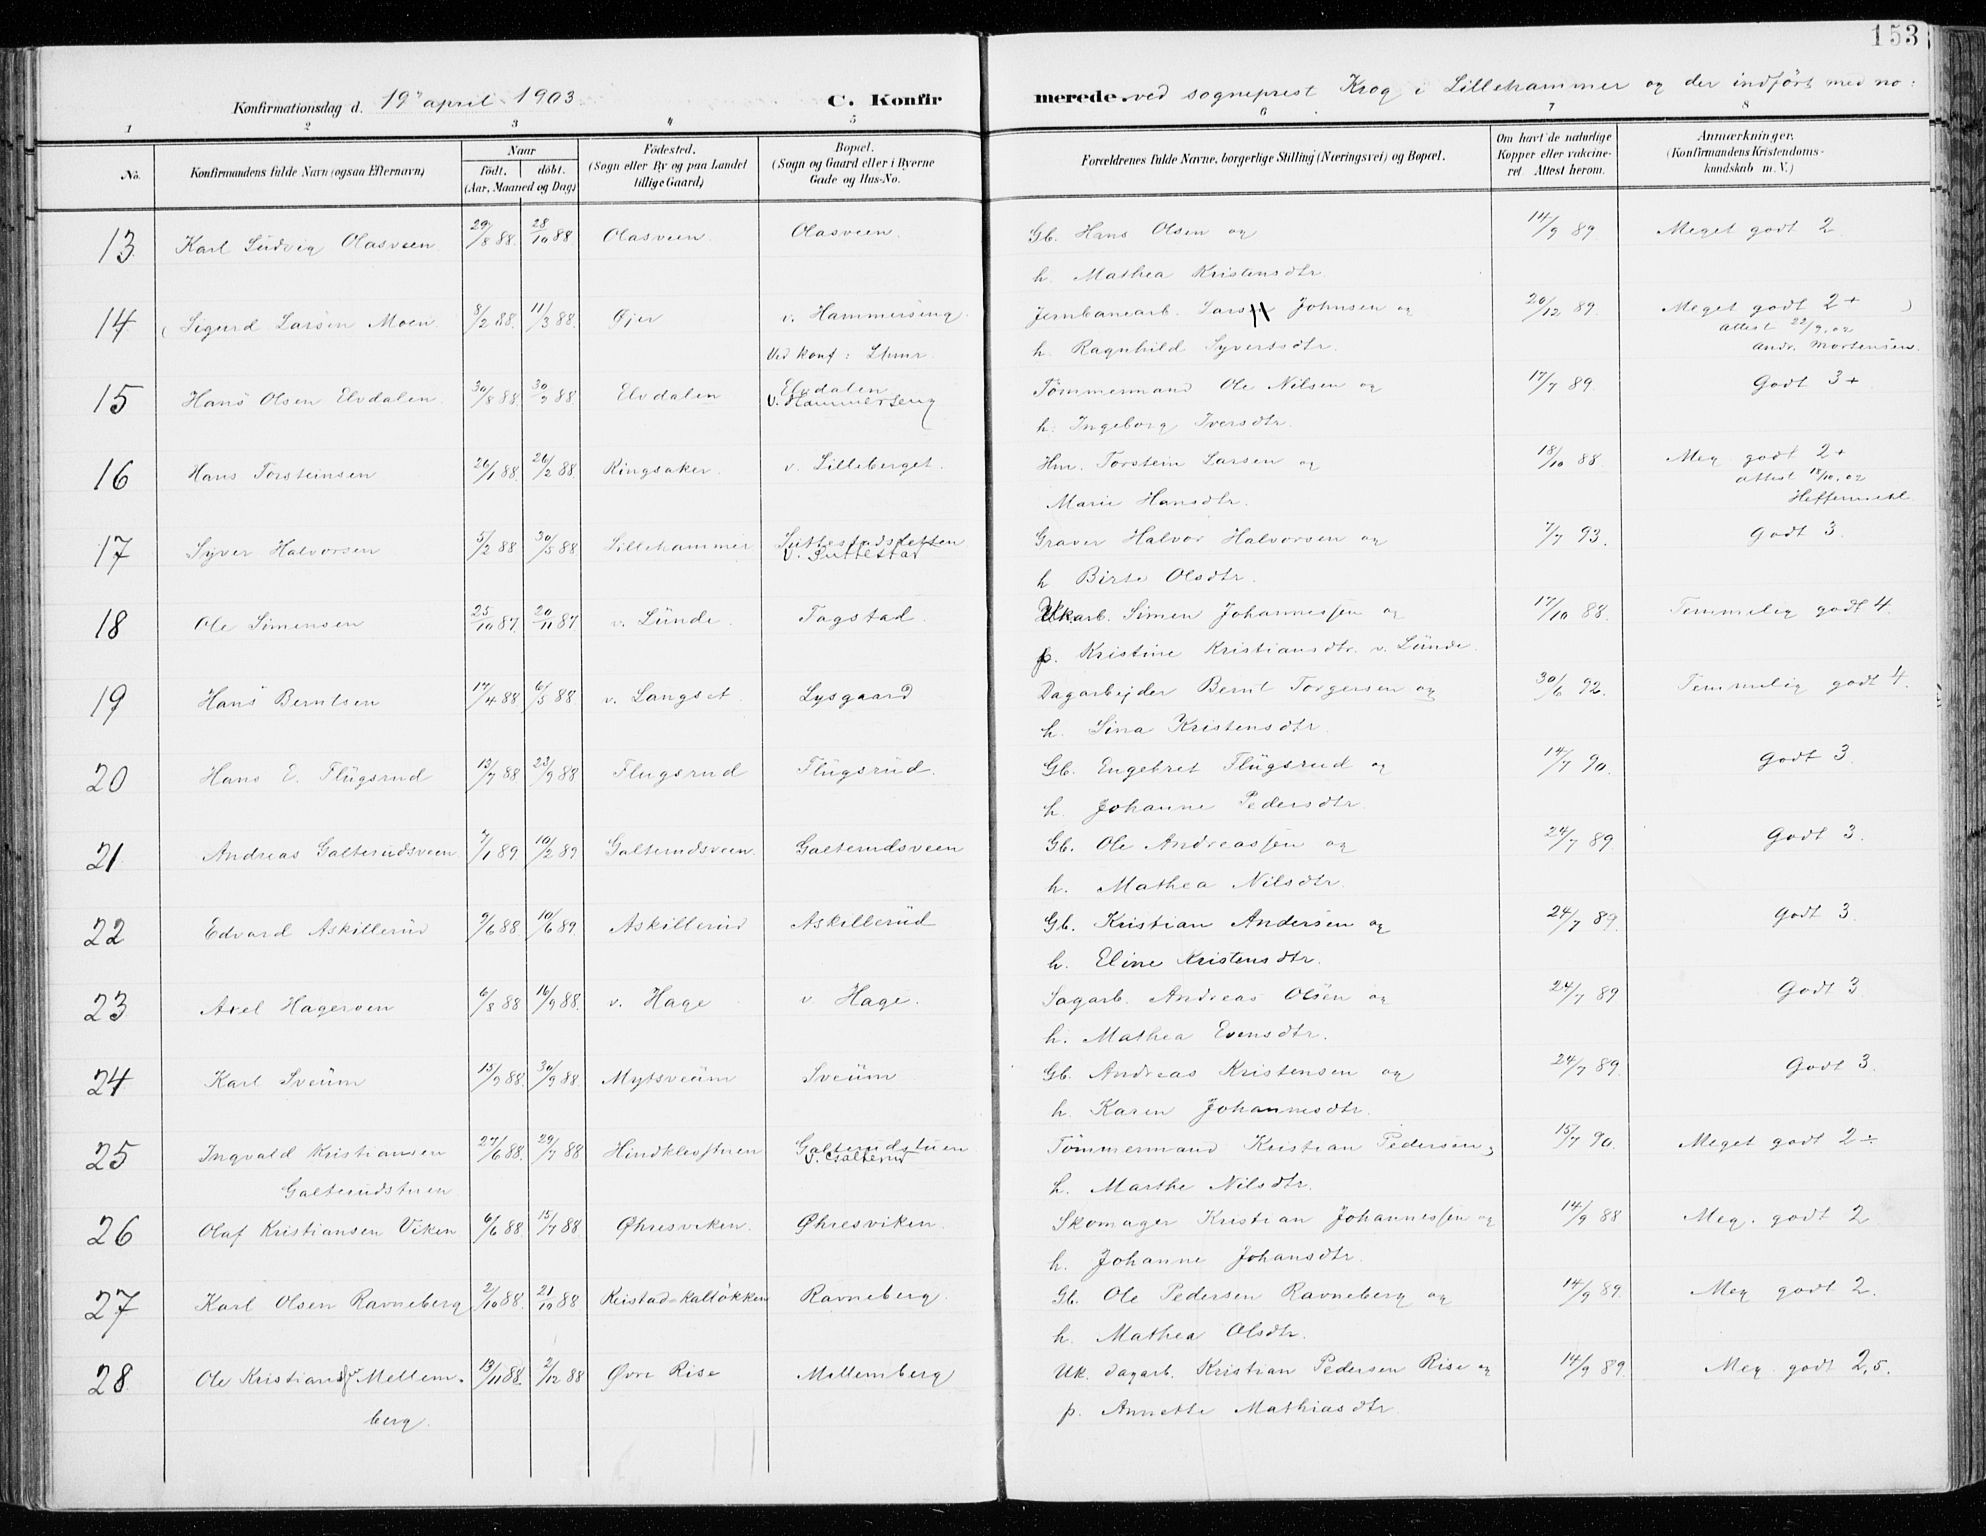 153
Konfirmationsdag d. 19de april 1903. C. Konfir merede. ved sogneprest Krog i Lillehammer og der indført med no:
1 2 3 4 5 6 7 8
No. Konfirmandens fulde Navn (ogsaa Efternavn) Naar født. døbt. (Aar, Maaned og Dag) Fødested. (Sogn eller By og paa Landet tillige Gaard) Bopæl. (Sogn og Gaard eller i Byerne Gade og Hus-No. Forældrenes fulde Navne, borgerlige Stilling (Næringsvei) og Bopæl. Om havt de naturlige Kopper eller vakcineret Attest herom. Anmærkninger. (Konfirmandens Kristendomskundskab m. V.)
13 Karl Ludvig Olasveen 29/8 88. 28/10 88 Olasveen. Olasveen. Gb. Hans Olsen og 14/9 89. Meget godt 2
h. Mathea Kristensdtr.
14 (Sigurd Larsen Moen 8/2 88. 11/3 88. Øjer v. Hammerseng. Jernbanearb. Lars Johnsen og 20/12 89. Meget godt 2+ )
Ved konf: Lhmr. h. Ragnhild Syvertsdtr. attest 22/9, og
Andr. Mortensen.
15 Hans Olsen Elvdalen. 30/8 88. 30/9 88. Elvdalen Elvdalen Tømmermand Ole Nilsen og 17/7 89. Godt 3+
v. Hammerseng h. Ingeborg Iversdtr.
16 Hans Torsteinsen 26/1 88. 26/2 88 Ringsaker. v. Lilleberget. Hm. Torstein Larsen og 18/10 88. Meg godt 2+
Marie Hansdtr. attest 18/10, og
17 Syver Halvorsen 5/2 88 30/5 88 Lillehammer Suttestadsletten Graver Halvor Halvorsen og 7/7 93. Godt 3.
v. Suttestad h Birte Olsdtr.
18 Ole Simensen 25/10 87. 20/11 87 v. Lunde. Fagstad. Uk arb. Simen Johannessen og 17/10 88. Temmelig godt 4.
p. Kristine Kristiansdtr. v. Lunde.
19 Hans Berntsen 17/4 88. 6/5 88. v. Langset. Lysgaard Dagarbejder Bernt Torgersen og 30/6 92. Temmelig godt 4.
h. Sina Kristensdtr.
20 Hans E. Flugsrud 13/7 88 23/9 88 Flugsrud Flugsrud. Gb. Engebret Flugsrud og 14/7 90. Godt 3.
h. Johanne Pedersdtr.
21 Andreas Galterudsveen. 7/1 89. 10/2 89 Galterudsveen. Galterudsveen Gb. Ole Andreassen og 24/7 89. Godt 3.
h. Mathea Nilsdtr.
22 Edvard Askillerud 9/6 88 10/6 89 Askillerud Askillerud Gb. Kristian Andersen og 24/7 89. Godt 3.
h. Eline Kristensdtr.
23 Axel Hageroen 6/8 88 16/9 88. v. Hage v. Hage. Sagarb. Andreas Olsen og 24/7 89 Godt 3
h. Mathea Evensdtr.
24 Karl Sveum 13/9 88. 30/9 88. Mytsveum Sveum Gb. Andreas Kristensen og 24/7 89. Godt 3.
h. Karen Johannesdtr.
25 Ingvald Kristiansen 27/6 88. 29/7 88 Galterudstuen Tømmermand Kristian Pedersen, 15/7 90. Meget godt 2÷
Galterudstuen v. Galterud h. Marthe Nilsdtr.
26 Olaf Kristiansen Viken 6/6 88. 15/7 88 Øhresviken. Øhresviken. Skomager Kristian Johannessen og 14/9 88 Meg. godt 2
h. Johanne Johansdtr.
27 Karl Olsen Ravneberg 2/10 88. 21/10 88 Ravneberg. Gb. Ole Pedersen Ravneberg og 14/9 89. Meg godt 2.
h. Mathea Olsdtr.
28 Ole Kristians. Mellem- 13/11 88. 2/12 88 Øvre Rise Mellemberg Uk. dagarb. Kristian Pedersen Rise og 14/9 89. Meg. godt 2,5.
berg. p. Annette Mathiasdtr.